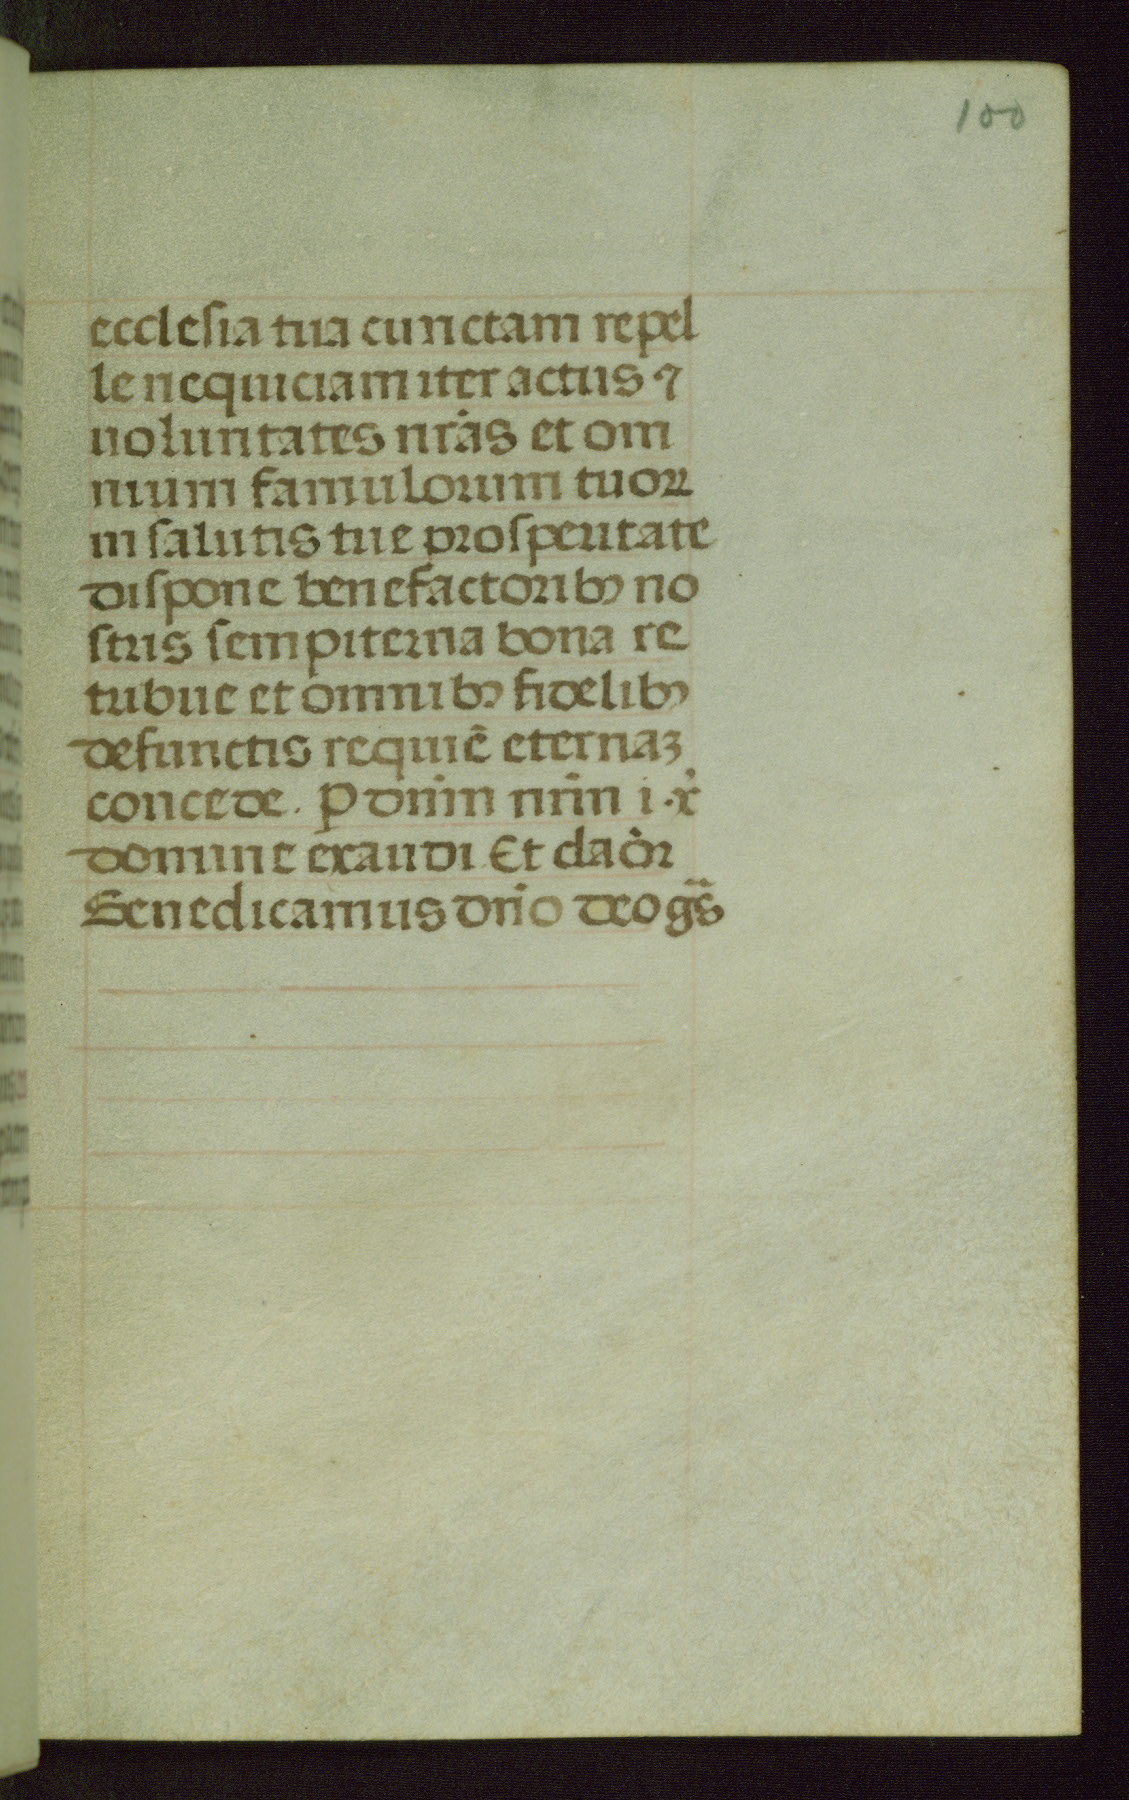 100
ecclesia tua cunctam repel
le nequiciam iter actus ⁊
uoluntates nr̃as et om
nium famulorum tuoꝝ
in salutis tue prosperitate
dispone benefactoribꝰ no
stris sempiterna bona re
tribue et omnibꝰ fidelibꝰ
defunctis requiẽ eternaꝫ
concede. P dnm̃ nrm̃ i.x̃
domine exaudi. Et cla õr
Benedicamus dnõ deo gs̃